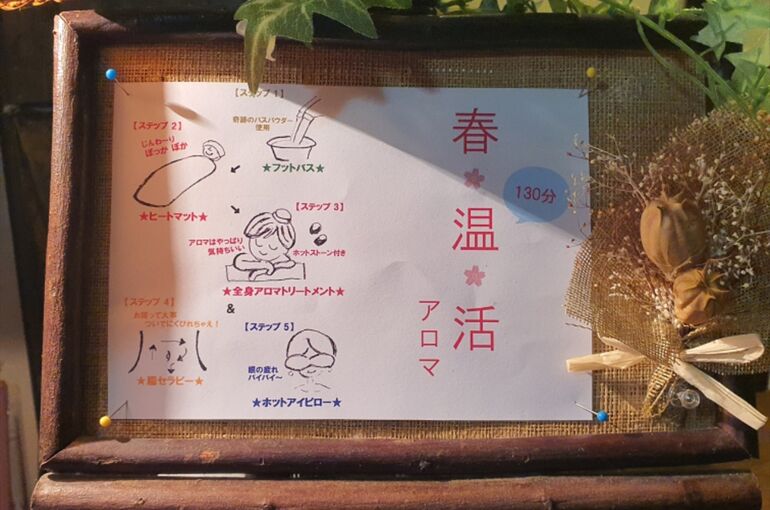 春
温
活
アロマ
130分
【ステップ 1】
奇跡のバスパウダー
使用
★フットバス★
【ステップ 2】
じんわーり
ぽっか ぽか
★ヒートマット★
【ステップ 3】
アロマはやっぱり
気持ちいい
ホットストーン付き
★全身アロマトリートメント★
&
【ステップ 4】
お腸って大事
ついでにくびれちゃえ！
★腸セラピー★
【ステップ 5】
眼の疲れ
バイバイ～
★ホットアイピロー★